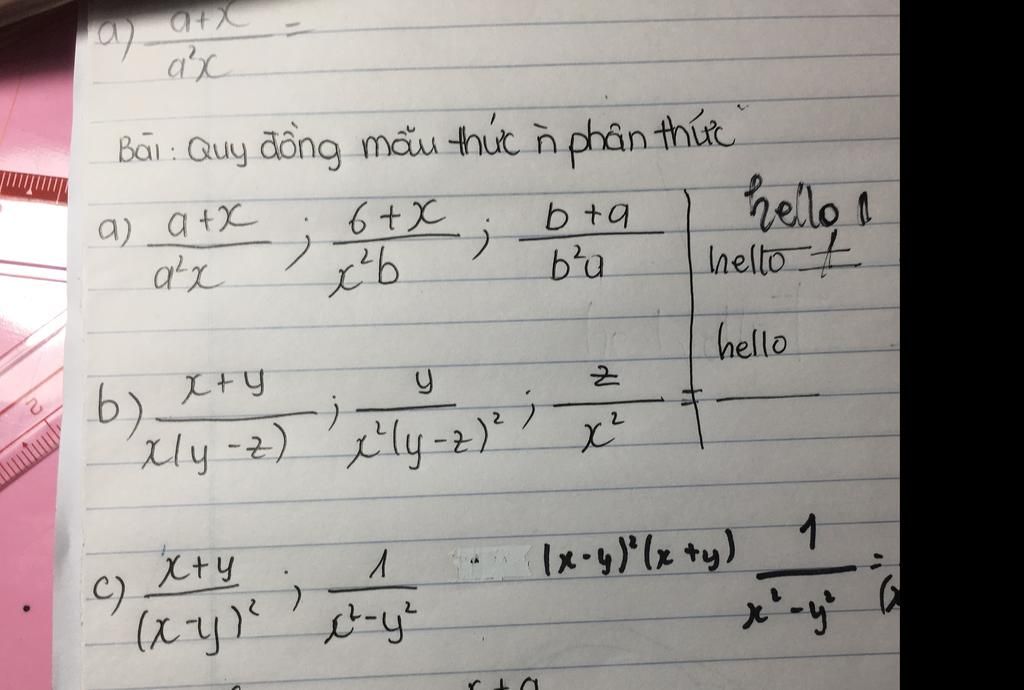 a) (a+x)/(a²x) =
Bài: Quy đồng mẫu thức ñ phân thức
a) (a+x)/(a²x) ; (6+x)/(x²b) ; (b+a)/(b²a)
hello 1
hello
hello
b) (x+y)/(x(y-z)) ; y/(x²(y-z)²) ; z/x² =
c) (x+y)/(x-y)² ; 1/(x²-y²)
(x-y)²(x+y) 1/(x²-y²) =
x+a
2